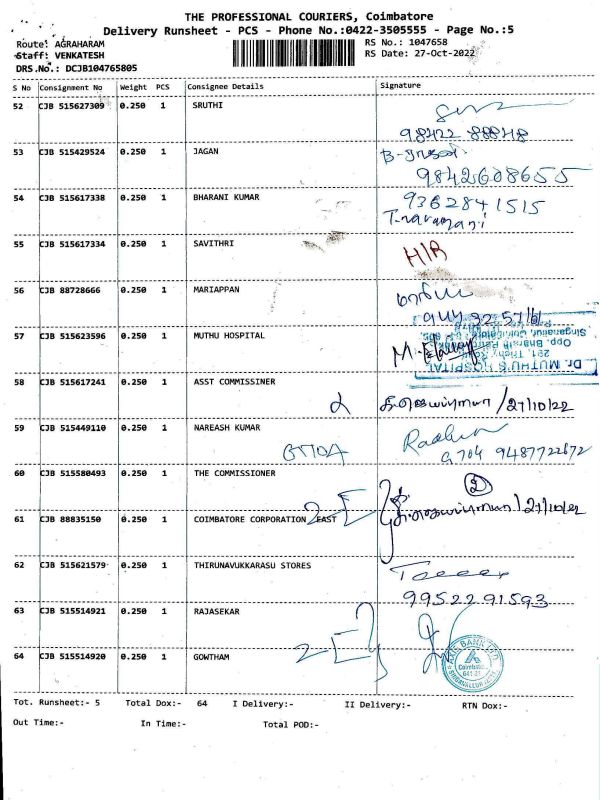 THE PROFESSIONAL COURIERS, Coimbatore
Delivery Runsheet - PCS - Phone No.:0422-3505555 - Page No.:5
Route: AGRAHARAM
Staff: VENKATESH
DRS.No.: DCJB104765805
RS No.: 1047658
RS Date: 27-Oct-2022
S No Consignment No Weight PCS Consignee Details Signature
52 CJB 515627309 0.250 1 SRUTHI
98422 88848
53 CJB 515429524 0.250 1 JAGAN
9842608655
54 CJB 515617338 0.250 1 BHARANI KUMAR 9362841515
55 CJB 515617334 0.250 1 SAVITHRI H/R
56 CJB 88728666 0.250 1 MARIAPPAN
57 CJB 515623596 0.250 1 MUTHU HOSPITAL
Dr. MUTHU'S HOSPITAL
291, Trichy Road,
58 CJB 515617241 0.250 1 ASST COMMISSINER
27/10/22
59 CJB 515449110 0.250 1 NAREASH KUMAR
G704 9487722672
60 CJB 515580493 0.250 1 THE COMMISSIONER
27/10/22
61 CJB 88835150 0.250 1 COIMBATORE CORPORATION EAST
62 CJB 515621579 0.250 1 THIRUNAVUKKARASU STORES
9952291593
63 CJB 515514921 0.250 1 RAJASEKAR
64 CJB 515514920 0.250 1 GOWTHAM
AXIS BANK LTD
Tot. Runsheet:- 5 Total Dox:- 64 I Delivery:- II Delivery:- RTN Dox:-
Out Time:- In Time:- Total POD:-